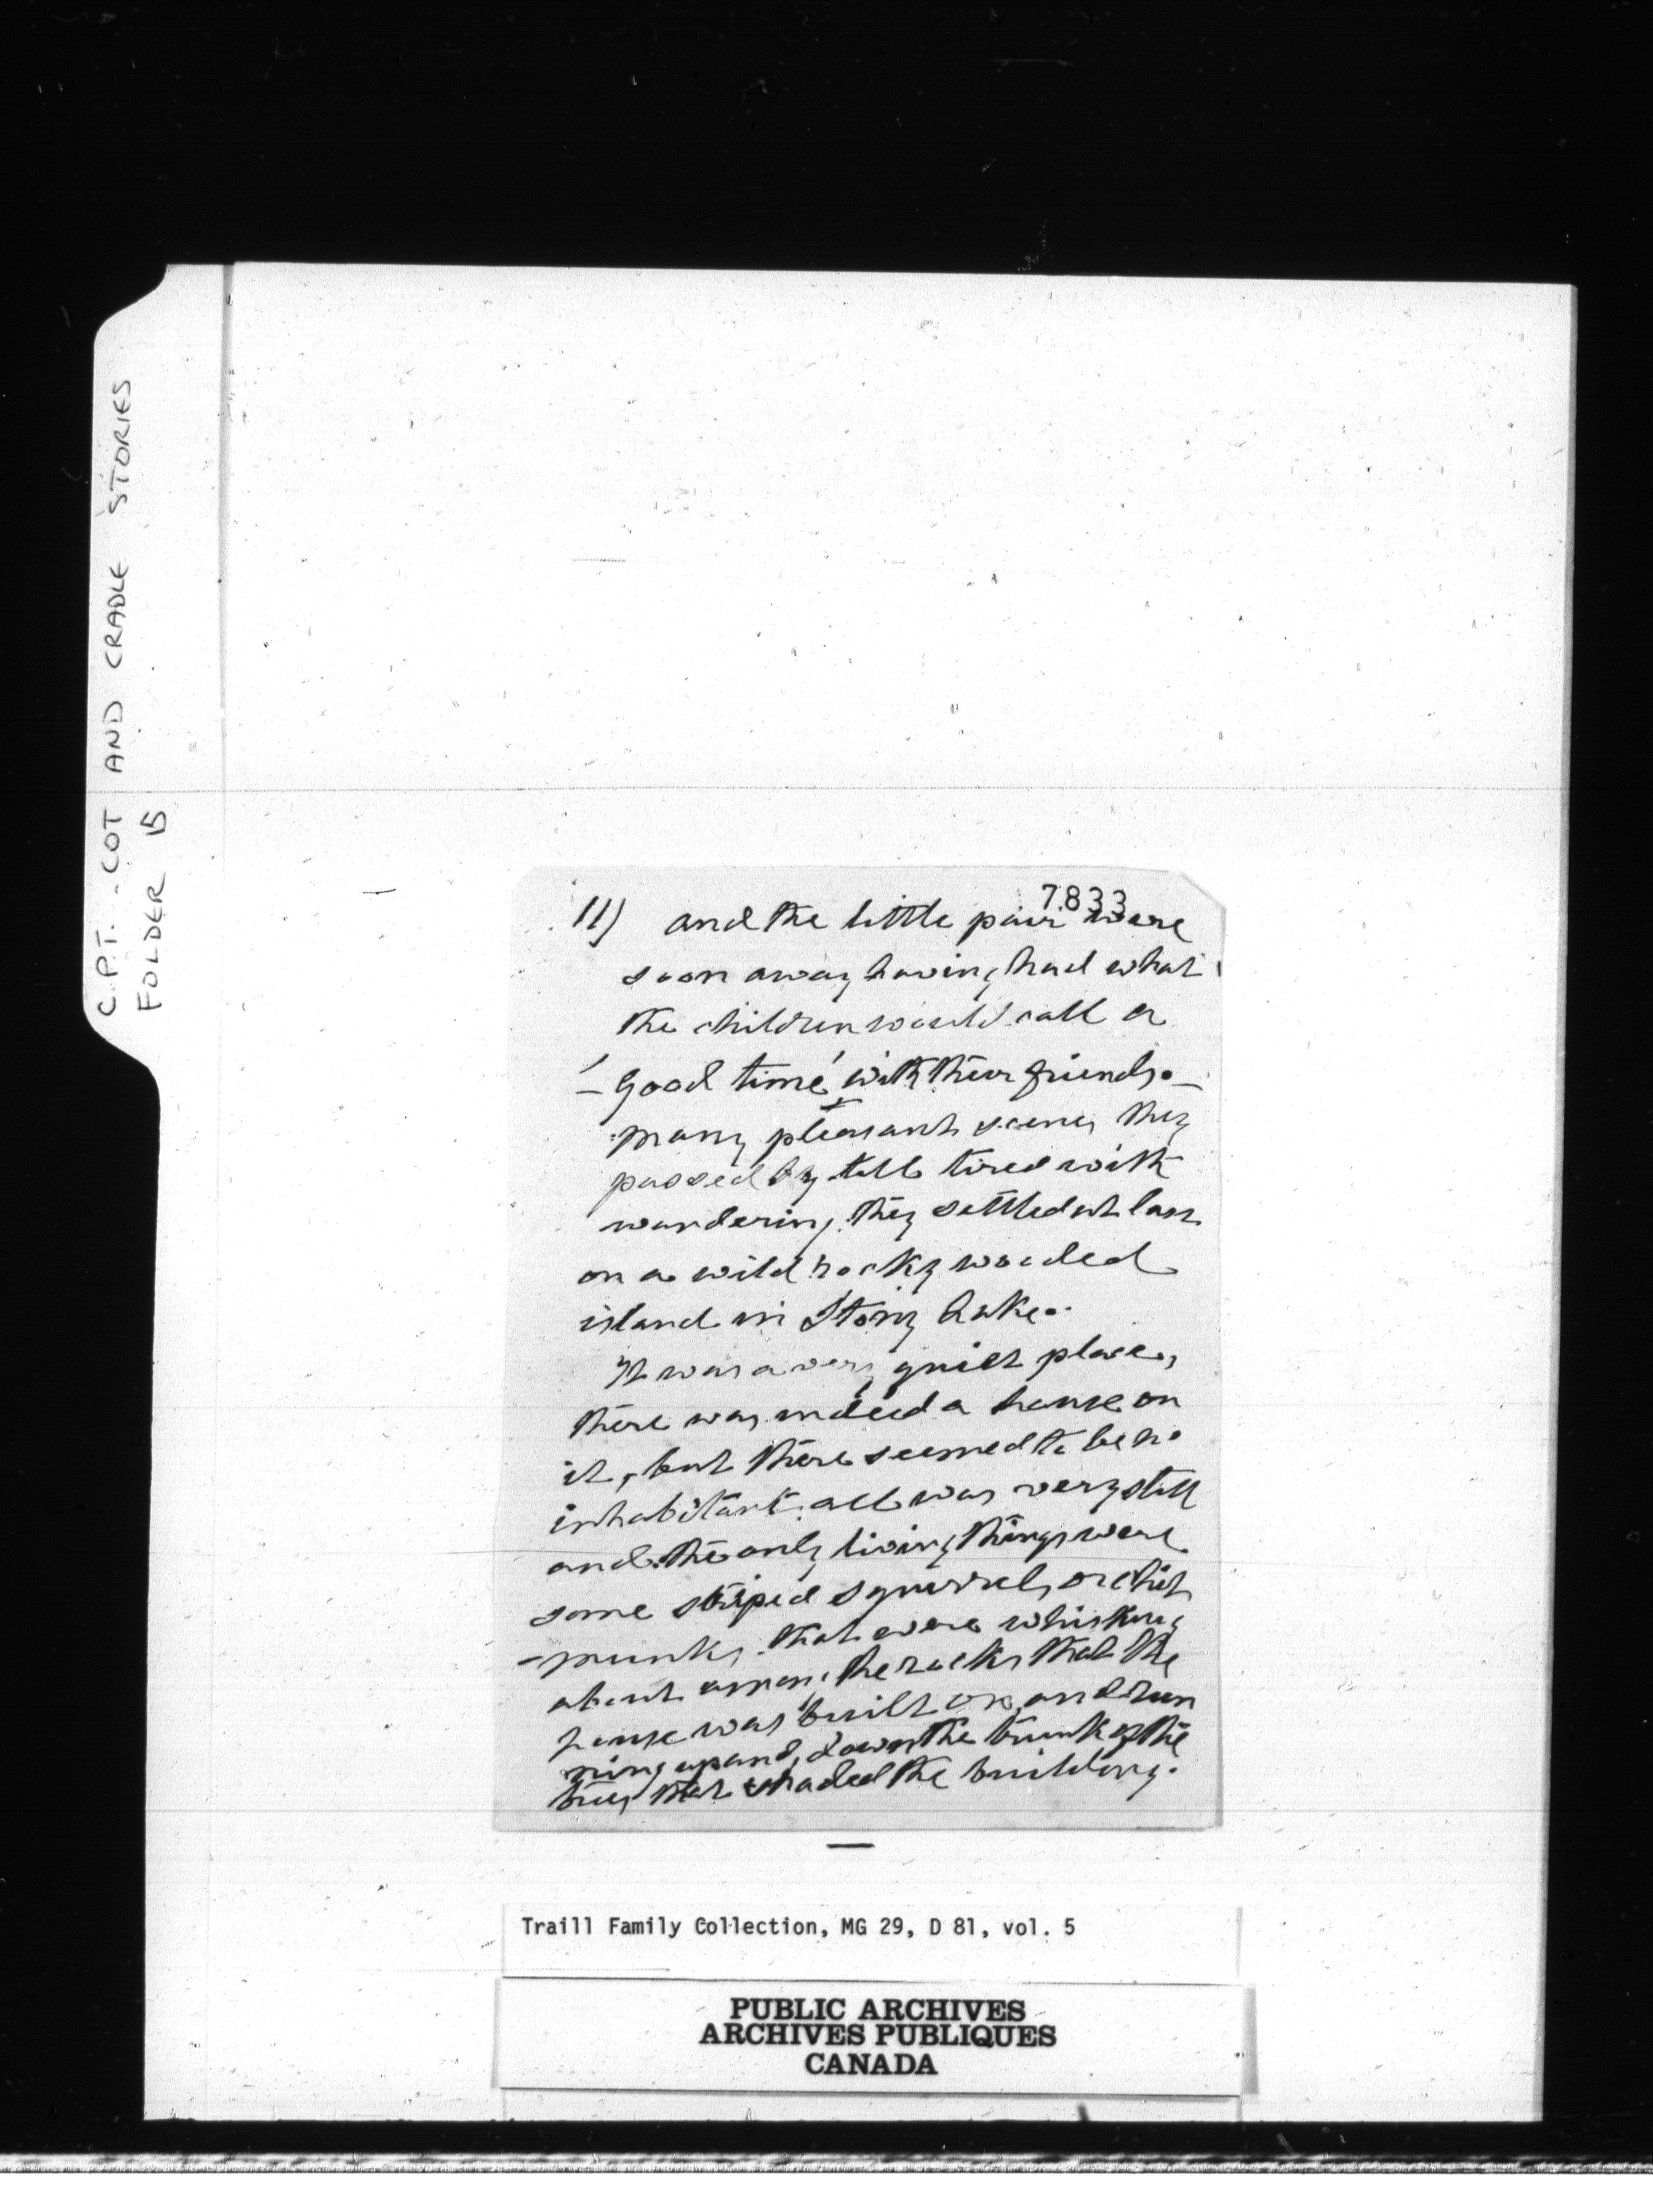 C.P.T. - COT AND CRADLE STORIES
FOLDER 15
7833
11) and the little pair were
soon away having had what
the children would call a
'- Good time' with their friends. -
many pleasant scenes they
passed by till tired with
wandering they settled at last
on a wild rocky wooded
island in Stony Lake.
It was a very quiet place,
there was indeed a house on
it, but there seemed to be no
inhabitant. all was very still
and the only living things were
some striped squirrels, or chip
-munks, that were whisking
about among the rocks that the
house was built on, and run
ning up and down the trunk of the
trees that shaded the building.
Traill Family Collection, MG 29, D 81, vol. 5
PUBLIC ARCHIVES
ARCHIVES PUBLIQUES
CANADA